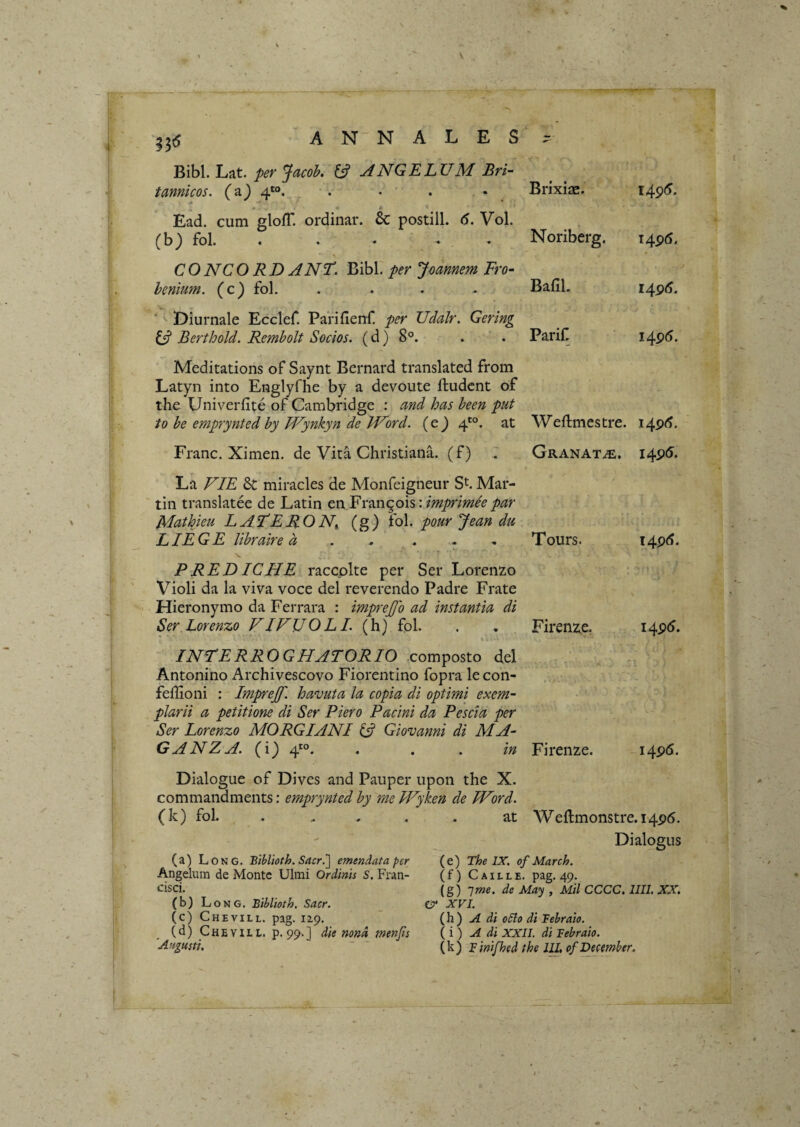 336 ANNALES
Bibl. Lat. per Jacob. & ANGELUM Bri-
tannicos. (a) 4to. . . . . Brixiæ. 1496.
Ead. cum gloſſ. ordinar. & postill. 6. Vol.
(b) fol. . . . . . Noriberg. 1496.
CONCORDANT. Bibl. per Joannem Fro-
benium. (c) fol. . . . . Baſil. 1496.
Diurnale Eccleſ. Pariſienſ. per Udalr. Gering
& Berthold. Rembolt Socios. (d) 8°. . . Pariſ. 1496.
Meditations of Saynt Bernard translated from
Latyn into Englyſhe by a devoute ſtudent of
the Univerſité of Cambridge : and has been put
to be emprynted by Wynkyn de Word. (e) 4to. at Weſtmestre. 1496.
Franc. Ximen. de Vitâ Christianâ. (f) . GRANATÆ. 1496.
La VIE & miracles de Monſeigneur St. Mar-
tin translatée de Latin en François : imprimée par
Mathieu LATERON, (g) fol. pour Jean du
LIEGE libraire à . . . . . Tours. 1496.
PREDICHE raccolte per Ser Lorenzo
Violi da la viva voce del reverendo Padre Frate
Hieronymo da Ferrara : impreſſo ad instantia di
Ser Lorenzo VIVUOLI. (h) fol. . . Firenze. 1496.
INTERROGHATORIO composto del
Antonino Archivescovo Fiorentino ſopra le con-
feſſioni : Impreſſ. havuta la copia di optimi exem-
plarii a petitione di Ser Piero Pacini da Pescia per
Ser Lorenzo MORGIANI & Giovanni di MA-
GANZA. (i) 4to. . . . . in Firenze. 1496.
Dialogue of Dives and Pauper upon the X.
commandments : emprynted by me Wyken de Word.
(k) fol. . . . . . at Weſtmonstre. 1496.
Dialogus
(a) LONG. Biblioth. Sacr.] emendata per
Angelum de Monte Ulmi Ordinis S. Fran-
cisci.
(b) LONG. Biblioth. Sacr.
(c) CHEVILL. pag. 129.
(d) CHEVILL. p. 99.] die nonâ menſis
Augusti.
(e) The IX. of March.
(f) CAILLE. pag. 49.
(g) 7me. de May , Mil CCCC. IIII. XX.
& XVI.
(h) A di octo di Febraio.
(i) A di XXII. di Febraio.
(k) Finiſhed the III. of December.